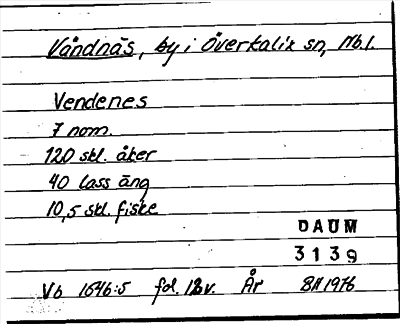 Våndnäs, by i Överkalix sn, Nb.l.
Vendenes
7 nom.
120 skl. åker
40 lass äng
10,5 skl. fiske
DAUM
3139
Vb 1646:5 fol. 12v. År BH 1976